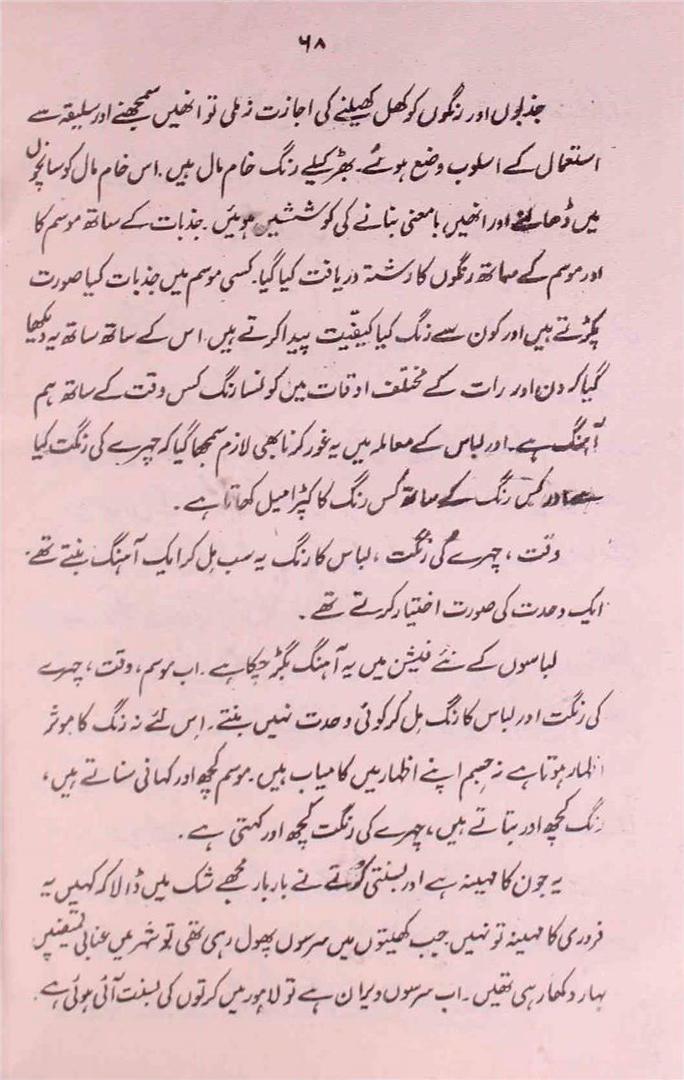 ۶۸
جذبوں اور رنگوں کو کھل کھیلنے کی اجازت نہ ملی تو انھیں سمجھنے اور سلیقہ سے
استعمال کے اسلوب وضع ہوئے۔ بھڑکیلے رنگ خام مال ہیں۔ اس خام مال کو سانچوں
میں ڈھالنے اور انھیں بامعنی بنانے کی کوششیں ہوئیں۔ جذبات کے ساتھ موسم کا
اور موسم کے ساتھ رنگوں کا رشتہ دریافت کیا گیا۔ کسی موسم میں جذبات کیا صورت
پکڑتے ہیں اور کون سے رنگ کیا کیفیت پیدا کرتے ہیں۔ اس کے ساتھ ساتھ یہ دیکھا
گیا کہ دن اور رات کے مختلف اوقات میں کونسا رنگ کس وقت کے ساتھ ہم
آہنگ ہے۔ اور لباس کے معاملہ میں یہ غور کرنا بھی لازم سمجھا گیا کہ چہرے کی رنگت کیا
ہے اور کس رنگ کے ساتھ کس رنگ کا کپڑا میل کھاتا ہے۔
وقت، چہرے کی رنگت، لباس کا رنگ یہ سب مل کر ایک آہنگ بنتے تھے۔
ایک وحدت کی صورت اختیار کرتے تھے۔
لباسوں کے نئے فیشن میں یہ آہنگ بگڑ چکا ہے۔ اب موسم، وقت، چہرے
کی رنگت اور لباس کا رنگ مل کر کوئی وحدت نہیں بنتے۔ اس لئے نہ رنگ کا موثر
اظہار ہوتا ہے نہ جسم اپنے اظہار میں کامیاب ہیں۔ موسم کچھ اور کہانی سناتے ہیں،
رنگ کچھ اور بتاتے ہیں، چہرے کی رنگت کچھ اور کہتی ہے۔
یہ جون کا مہینہ ہے اور بسنتی کُرتے نے بار بار مجھے شک میں ڈالا کہ کہیں یہ
فروری کا مہینہ تو نہیں۔ جب کھیتوں میں سرسوں پھول رہی تھی تو شہر میں عنابی قمیضیں
بہار دکھا رہی تھیں۔ اب سرسوں ویران ہے تو لاہور میں کرتوں کی بسنت آئی ہوئی ہے۔